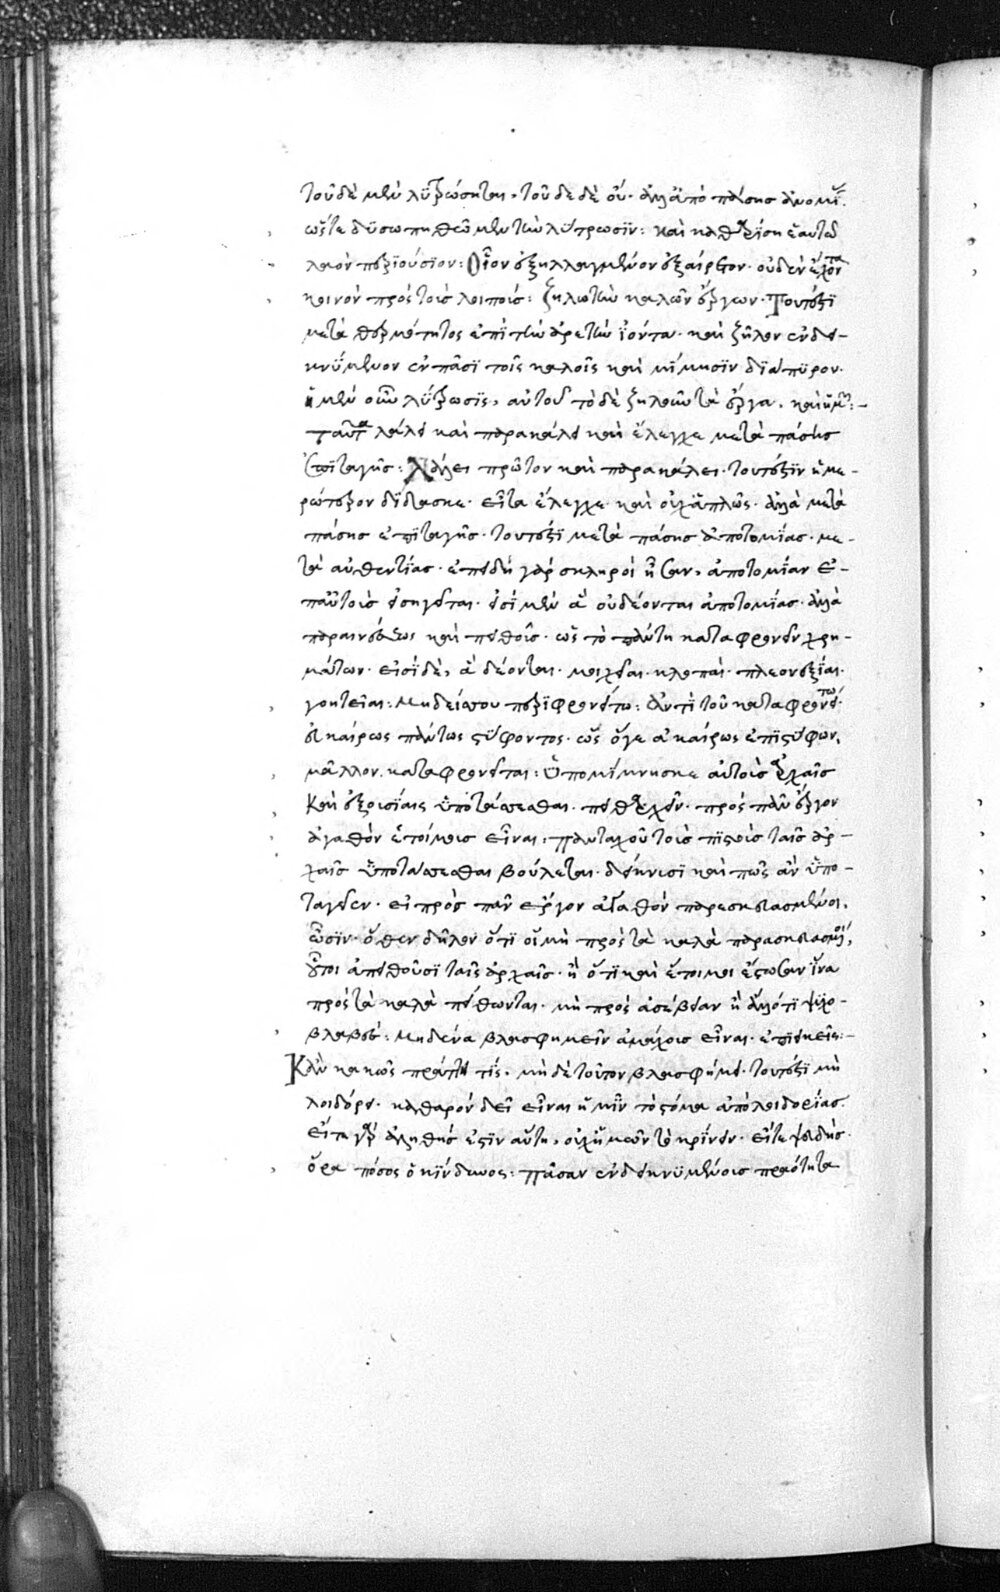 τοῦδὲ μὲν λϋτρώσηται, τοῦ δε δὲ οὔ· ἀλλ' ἀπὸ πάσης ἀνομΐ.
ὥστε δϋσωπηθῶμεν τὴν λύτρωσϊν: καὶ καθαρίση ἑαυτῶ
λαὸν περϊούσϊον: Οἷον ἐξηλλαγμένον ἐξαίρετον· οὐδὲν ἔχοντα
κοινὸν πρὸς τοὺς λοιποὺς: ζηλωτὴν καλῶν ἔργων· Τουτέστϊ
μετὰ θερμότητος ἐπὶ τὴν ἀρετὴν ϊόντα· καὶ ζῆλον ἐνδει-
κνΰμενον ἐν πᾶσϊ τοῖς καλοῖς καὶ μΐμησϊν δϊάπϋρον·
ἡ μὲν οὖν λΰτρωσϊς, αὐτοῦ τὸ δὲ ζηλοῦν τὰ ἔργα, καὶ ἡμῶν:-
Ταῦτα λάλει καὶ παρακάλει καὶ ἔλεγχε μετὰ πάσης
ἐπϊταγῆς: Λάλει πρῶτον καὶ παρακάλει· τουτέστϊν ἡμε-
ρώτερον δΐδασκε· εἶτα ἔλεγχε καὶ οὐχ ἁπλῶς· ἀλλὰ μετὰ
πάσης ἐπϊταγῆς· τουτέστϊ μετὰ πάσης ἀποτομΐας· με-
τὰ αὐθεντΐας· ἐπειδὴ γὰρ σκληροὶ ἦσαν, ἀποτομΐαν ἐ-
π' αὐτοὺς εἰσηγεῖται· εἰσϊ μὲν ἃ οὐ δέονται ἀποτομΐας· ἀλλὰ
παραινέσεως καὶ πειθοῦς· ὡς τὸ πάντη καταφρονεῖν χρη-
μάτων· εἰσῒ δὲ, ἃ δέονται· μοιχεῖαι· κλοπαὶ· πλεονεξΐαι·
γοητεῖαι: Μηδείς σου περϊφρονείτω: Αντῒ τοῦ καταφρονείτω·
εὐκαίρως πάντως στΰφοντος· ὡς ὅγε ἀκαίρως ἐπϊστΰφων,
μᾶλλον καταφρονεῖται: Ὑπομΐμνησκε αὐτοὺς ἀρχαῖς
καὶ ἐξουσΐαις ὑποτάσσεσθαι· πειθαρχεῖν· πρὸς πᾶν ἔργον
ἀγαθὸν ἑτοίμους εἶναι: Πανταχοῦ τοὺς πϊστοὺς ταῖς ἀρ-
χαῖς ὑποτάσσεσθαι βούλεται· δείκνυσϊ καὶ πῶς ἂν ὑπο-
ταγεῖεν· εἰ πρὸς πᾶν ἔργον ἀγαθὸν παρεσκευασμένοι,
ὦσϊν· ὅθεν δῆλον ὅτϊ οἱ μὴ πρὸς τὰ καλὰ παρασκευασμένοι,
οὗτοι ἀπειθοῦσϊ ταῖς ἀρχαῖς· ἢ ὅτϊ καὶ ἕτοιμοι ἔστωσαν ἵνα
πρὸς τὰ καλὰ πείθωνται· μὴ πρὸς ἀσέβειαν ἢ ἄλλό τϊ ψϋχο-
βλαβὲς: Μηδένα βλασφημεῖν ἀμάχους εἶναι· ἐπϊεικεῖς:-
Κἂν κακῶς πράττη τΐς· μὴ δὲ τοῦτον βλασφήμει· τουτέστϊ μὴ
λοιδόρει· καθαρὸν δεῖ εἶναι ἡμῖν τὸ στόμα ἀπὸ λοιδορΐας.
εἴτε γὰρ ἀληθής ἐστϊν αὕτη, οὐχ ἡμῶν τὸ κρΐνειν· εἴτε ψευδὴς
ὅρα πόσος ὁ κΐνδυνος: Πᾶσαν ἐνδεικνϋμένους πραότητα